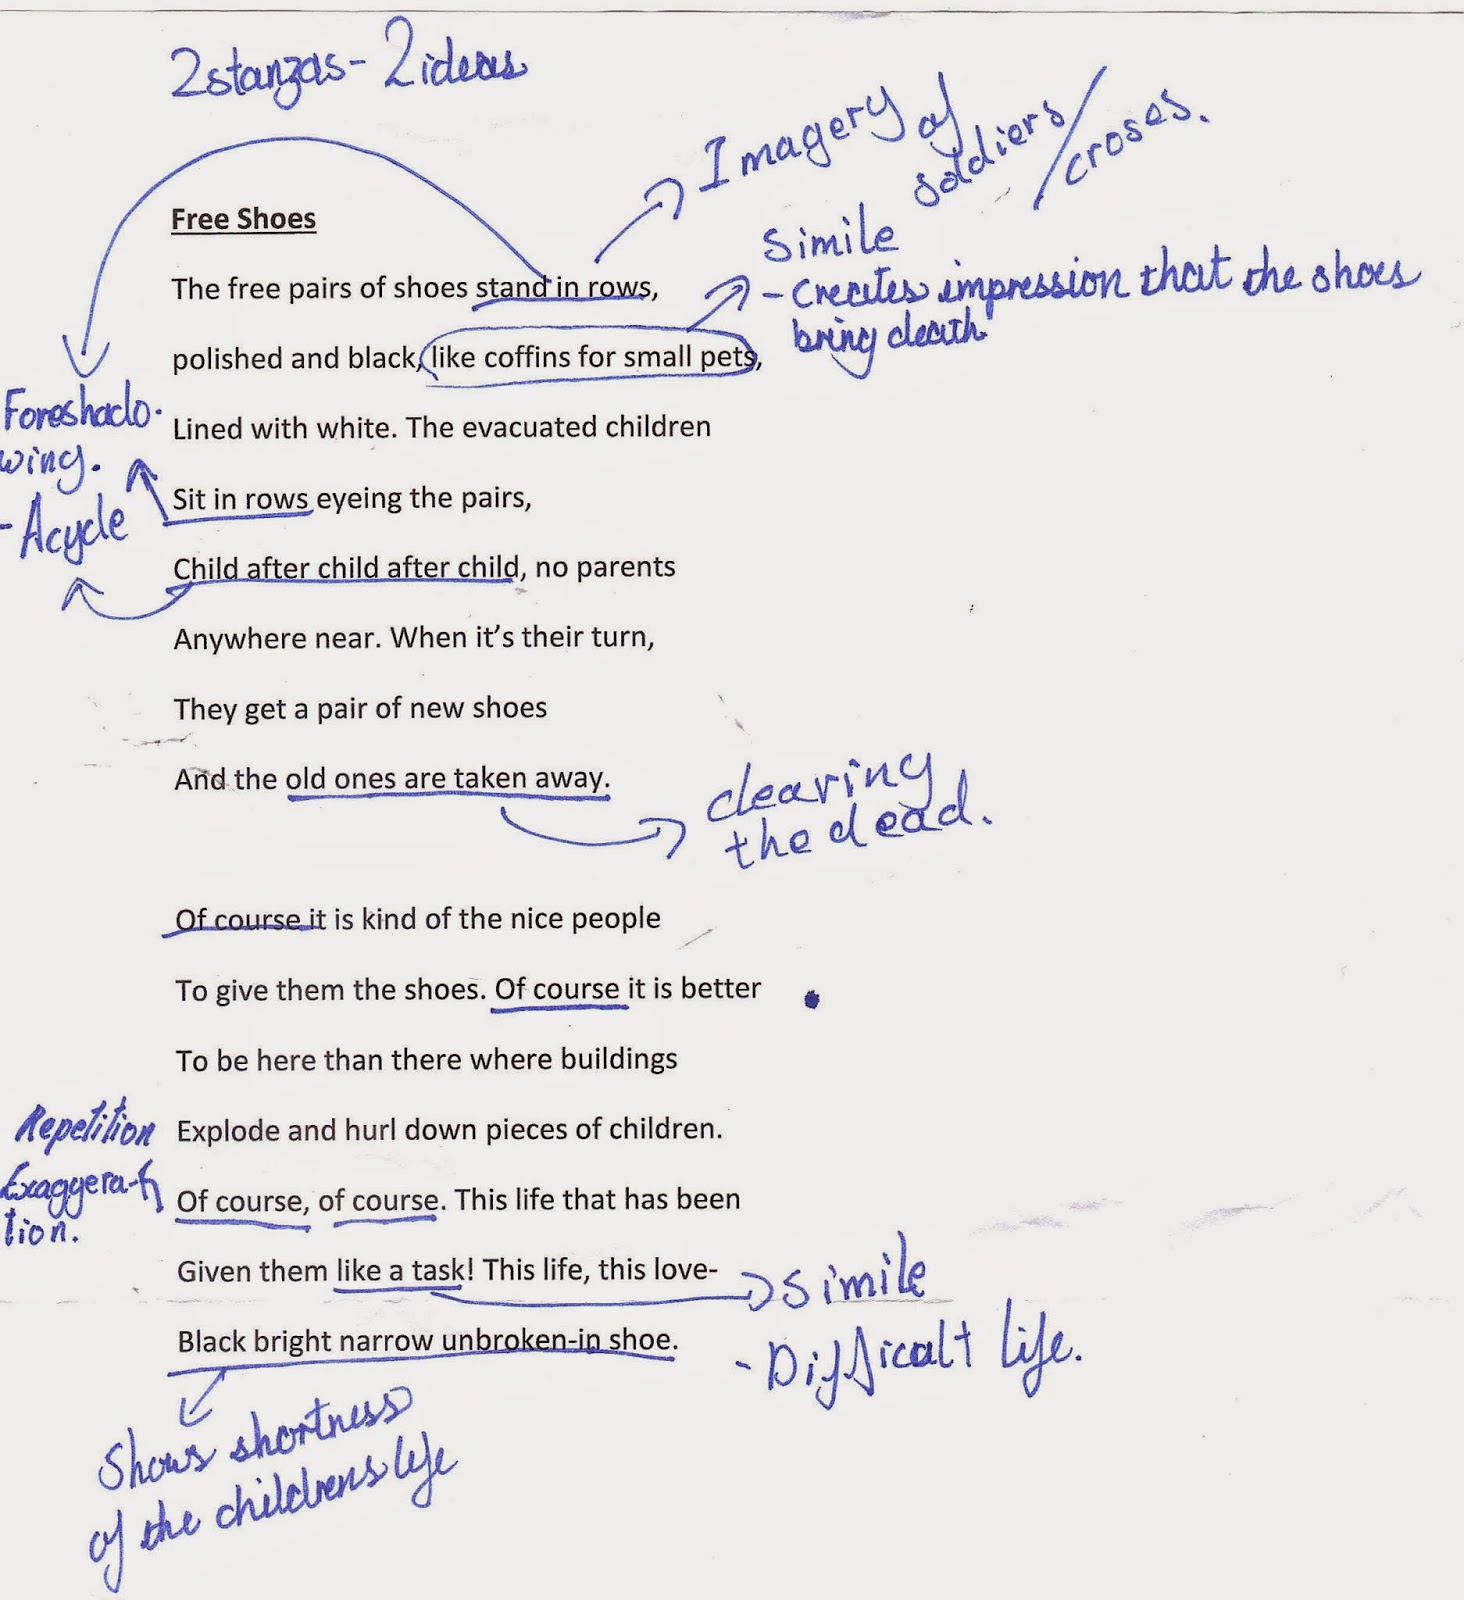 2stanzas- 2ideas
Imagery of
soldiers/
croses.
Free Shoes
Simile
- Creates impression that the shoes
bring death
The free pairs of shoes stand in rows,
polished and black, like coffins for small pets,
Foreshado-
wing.
Lined with white. The evacuated children
- A cycle
Sit in rows eyeing the pairs,
Child after child after child, no parents
Anywhere near. When it's their turn,
They get a pair of new shoes
And the old ones are taken away.
clearing
the dead.
Of course it is kind of the nice people
To give them the shoes. Of course it is better
To be here than there where buildings
Repetition
Explode and hurl down pieces of children.
Exaggera-
tion.
Of course, of course. This life that has been
Given them like a task! This life, this love-
Simile
- Difficalt life.
Black bright narrow unbroken-in shoe.
Shows shortness
of the childrens life